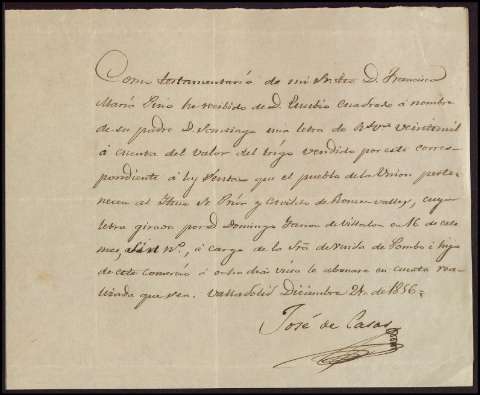 Como testamentario de mi Sr tio D. Francisco
Maria Pino he recibido de D. Eusebio Cuadrado á nombre
de su padre D. Santiago una letra de Rs vn veintimil
á cuenta del valor del trigo vendido por este corres-
pondiente á las Rentas que el pueblo de la Union perte-
necen al Sr Prior y Cavildo de Roncesvalles, cuya
letra girada por D. Domingo de Villalon en 16 de este
mes, sin nº, á cargo de la Sra Viuda de Pombo é hijo
de este comercio á ocho dias vista le abonare en cuenta rea-
lizada que sea. Valladolid Diciembre 24 de 1856=
José de Casas